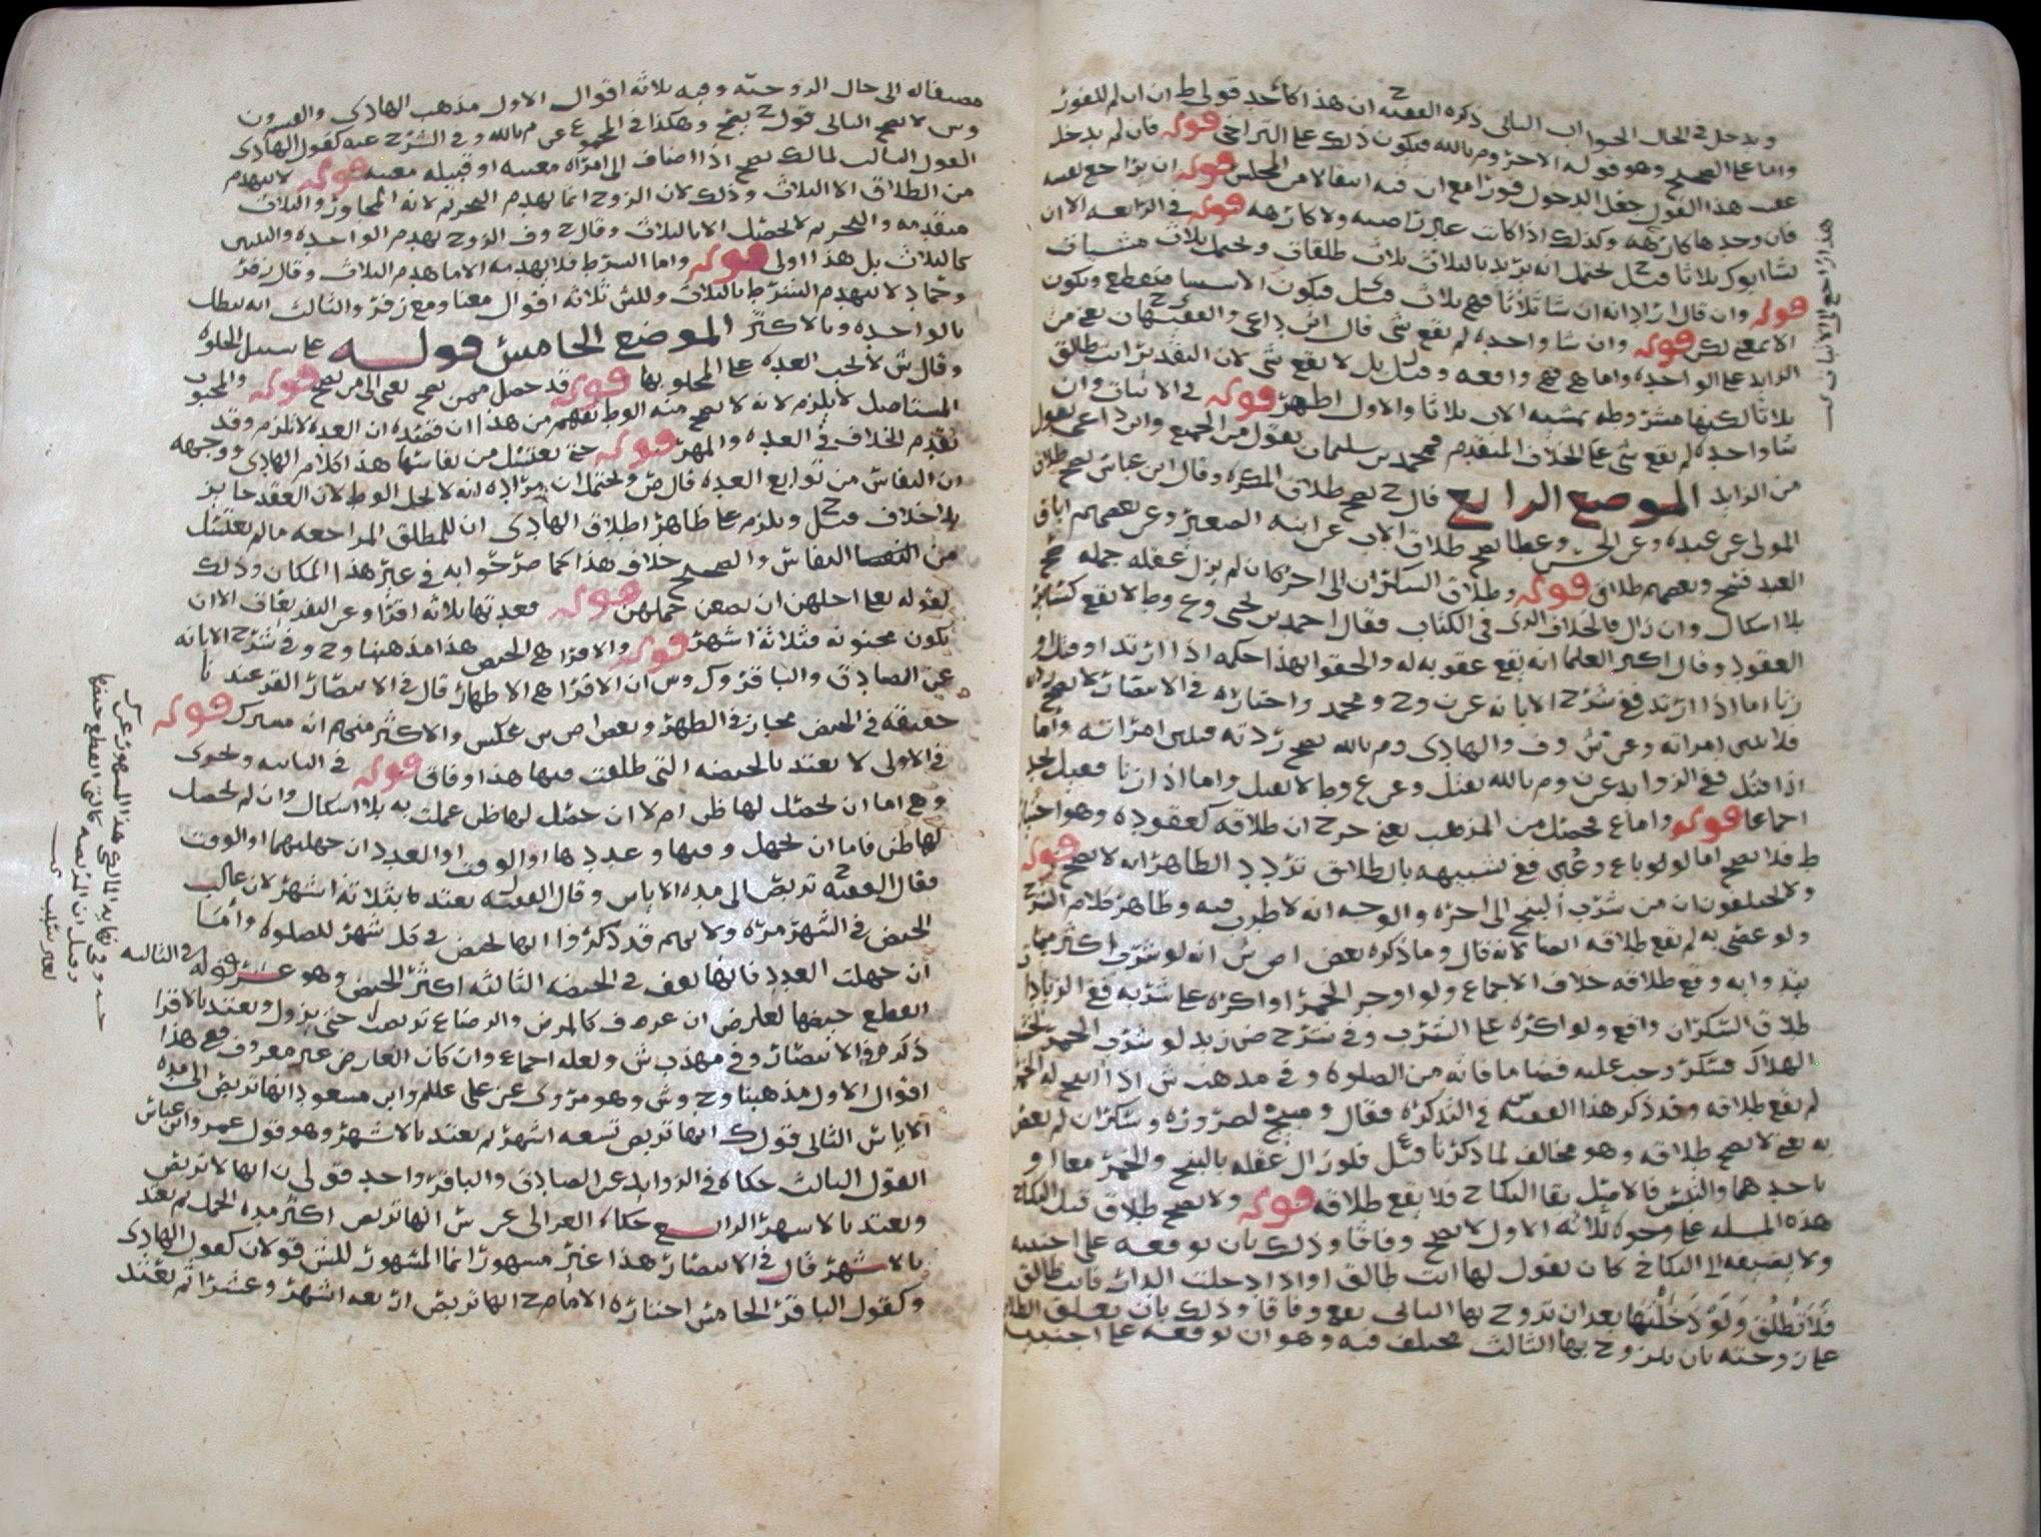 ويدخل في الحال الجواب الثاني ذكره الفقيه ح ان هذا كاحد قولي ط ان ان لم للفور
واما على الصحيح وهو قوله الاخر وم بالله فيكون ذلك على التراخي قوله فان لم يدخل
عقب هذا القول جعل الدخول فورا مع ان فيه انتقالا من المجلس قوله ان يراجع نفسه
فان وجدها كارهة وكذلك اذا كانت غير راضيه ولا كارهه قوله في الرابعه الا ان
يشا ابوك ثلاثا قيل ح يحتمل انه يريد بالثلاث ثلاث طلقات ويحتمل ثلاث مشيات
قوله وان قال اراد انه ان شا ثلاثا فهي ثلاث قيل فيكون الاستثنا منقطع ويكون
الا بمعنى لكن قوله وان شا واحده لم يقع شي قال ابن داعي والفقيهان يعني من
الزايد على الواحده واما هي فهي واقعه وقيل ل بل لا يقع شي لان التقدير انت طالق
ثلاثا لكنها مشروطه بمشيه الاب ثلاثا والاول اظهر قوله في الاثبات وان
شا واحده لم يقع شي على الخلاف المتقدم فمحمد بن سليمان يقول من الجميع وابن داعي يقول
من الزايد الموضع الرابع قال ح يصح طلاق المكره وقال ابن عباس يصح طلاق
المولى عن عبده وعن الحسن وعطا يصح طلاق الاب عن ابنه الصغير وعن بعضهم اباق
العبد فسخ وبعضهم طلاق قوله وطلاق السكران الى اخره كان لم يزل عقله جمله صح
بلا اشكال وان زال فالخلاف الذي في الكتاب فقال احمد بن يحيى وع وط لا يقع كسائر
العقود وقال اكثر العلما انه يقع عقوبه له والحقوا بهذا حكمه اذا ارتد او قتل او
زنا اما اذا ارتد ففي شرح الابانه عن ن وح ومحمد واختاره في الانتصار لا تصح ردته
فلا تبين امراته وعن ش وف والهادي وم بالله تصح ردته فتبين امراته واما
اذا قتل ففي الزوايد عن ن وم بالله يقتل وعن ع وط لا يقتل واما اذا زنا فقيل يحد
اجماعا قوله واما ع فحصل من المذهب يعني خرج ان طلاقه كعقوده وهو اختيار
ط فلا يصح اما لو لو باع وغبن ففي تشبيهه بالطلاق تردد الظاهر انه لا يصح قوله
ولا يختلفون ان من شرب البنج الى اخره والوجه انه لا طرب فيه وظاهر كلام الشرح
ولو عصى به لم يقع طلاقه ايضا لانه قال وما ذكره بعض اص ش انه لو شرب اكثر مما
يتداوا به وقع طلاقه خلاف الاجماع ولو اوجر الخمر او اكره على شربه ففي الزيادات
طلاق السكران واقع ولو اكره على الشرب وفي شرح ض زيد لو شرب الخمر لخشية
الهلاك فسكر وجب عليه قضا ما فاته من الصلوه وفي مذهب ش اذا ابيح له الخمر
لم يقع طلاقه وقد ذكر هذا الفقيه س في التذكرة فقال ومبنج لضروره وسكران لم يعص
به يعني لا يصح طلاقه وهو مخالف لما ذكرنا قيل ع فلو زال عقله بالبنج والخمر معا او
باحدهما والتبس فالاصل بقا النكاح فلا يقع طلاقه قوله ولا يصح طلاق قبل النكاح
هذه المسله على وجوه ثلاثه الاول لا يصح وفاقا وذلك بان يوقعه على اجنبيه
ولا يضيفه الى النكاح كان يقول لها انت طالق او اذا دخلت الدار فانت طالق
فلا تطلق ولو دخلتها بعد ان تزوج بها الثاني يقع وفاقا وذلك بان يعلق الطلاق
على زوجته بان يتزوج بها الثالث مختلف فيه وهو ان يوقعه على اجنبيه
هذا راجع الى الاثبات
مضافا الى حال الزوجيه وفيه ثلاثه اقوال الاول مذهب الهادي والقسم ون
وس لا يصح الثاني قول ح يصح وهكذا في المجموع عن م بالله وفي الشرح عنه كقول الهادي
القول الثالث لمالك يصح اذا اضاف الى امراه معينه او قبيله معينه قوله لا ينهدم
من الطلاق الا الثلاث وذلك لان الزوج انما يهدم التحريم لانه المجاوز والثلاث
متقدمه والتحريم لا يحصل الا بالثلاث وقال ح وف الزوج يهدم الواحده والثنتين
كالثلاث بل هذا اولى قوله واما الشرط فلا يهدمه الا ما هدم الثلاث وقال زفر
وحماد لا ينهدم الشرط بالثلاث وللش ثلاثه اقوال معنا ومع زفر والثالث انه يبطل
بالواحده وبالاكثر الموضع الخامس قوله على سبيل الخلوه
وقال ش لا تجب العده على المخلو بها قوله قد حصل ممن يصح يعني الى من يصح قوله والمجبوب
المستاصل لا يلزم لانه لا يصح منه الوط يفهم من هذا ان قصده ان العده لا تلزم وقد
تقدم الخلاف في العده والمهر قوله حتى تغتسل من نفاسها هذا كلام الهادي ووجهه
ان النفاس من توابع العده قال ض ويحتمل ان مراده انه لا يحل الوط لان العقد جايز
بلا خلاف قيل ح ويلزم على ظاهر اطلاق الهادي ان للمطلق المراجعه ما لم تغتسل
من النفاس والصحيح خلاف هذا كما صرحوا به في غير هذا المكان وذلك
لقوله تعالى اجلهن ان يضعن حملهن قوله فعدتها ثلاثه اقرا وعن التفريعات الا ان
تكون مجنونه فثلاثة اشهر قوله والاقرا هي الحيض هذا مذهبنا وح وفي شرح الابانه
عن الصادق والباقر وك وس ان الاقرا هي الاطهار قال في الانتصار القرء عندنا
حقيقه في الحيض مجاز في الطهر وبعض اص ش عكس والاكثر منهم انه مشترك قوله
في الاولى لا يعتد بالحيضه التي طلقت فيها هذا وفاق قوله في الثانيه وتتحرى
وهي اما ان يحصل لها ظن ام لا ان حصل لها ظن عملت به بلا اشكال وان لم يحصل
لها ظن فاما ان تجهل وقتها وعددها او الوقت او العدد ان جهلتهما او الوقت
فقال الفقيه ح تربص الى مده الاياس وقال الفقيه ل تعتد بثلاثة اشهر لان غالب
الحيض في الشهر مره ولانهم قد ذكروا انها تحيض في كل شهر للصلوه واما
ان جهلت العدد فانها تقف في الحيضه الثالثه اكثر الحيض وهو عشر قوله في الثالثه
انقطع حيضها لعارض ان عرف كالمرض والرضاع تربصت حتى يزول وتعتد بالاقرا
ذكره في الانتصار وفي مهذب ش ولعله اجماع وان كان العارض غير معروف ففي هذا
اقوال الاول مذهبنا وح وش وهو مروي عن علي عللم وابن مسعود انها تربص الى مده
الاياس الثاني قول ك انها تربص تسعه اشهر ثم تعتد بالاشهر وهو قول عمر وابن عباس
القول الثالث حكاه في الزوايد عن الصادق والباقر واحد قولي ن انها لا تربص
وتعتد بالاشهر الرابع حكاه الغزالي عن ش انها تربص اكثر مده الحمل ثم تعتد
بالاشهر قال في الانتصار هذا غير مشهور انما المشهور للش قولان كقول الهادي
وكقول الباقر الخامس اختاره الامام ح انها تربص اربعه اشهر وعشرا ثم تعتد
هذا المشهور عن ك
وفي نهايه المالكي
وقيل ان المرتضعه كالتي انقطع حيضها
لغير سبب